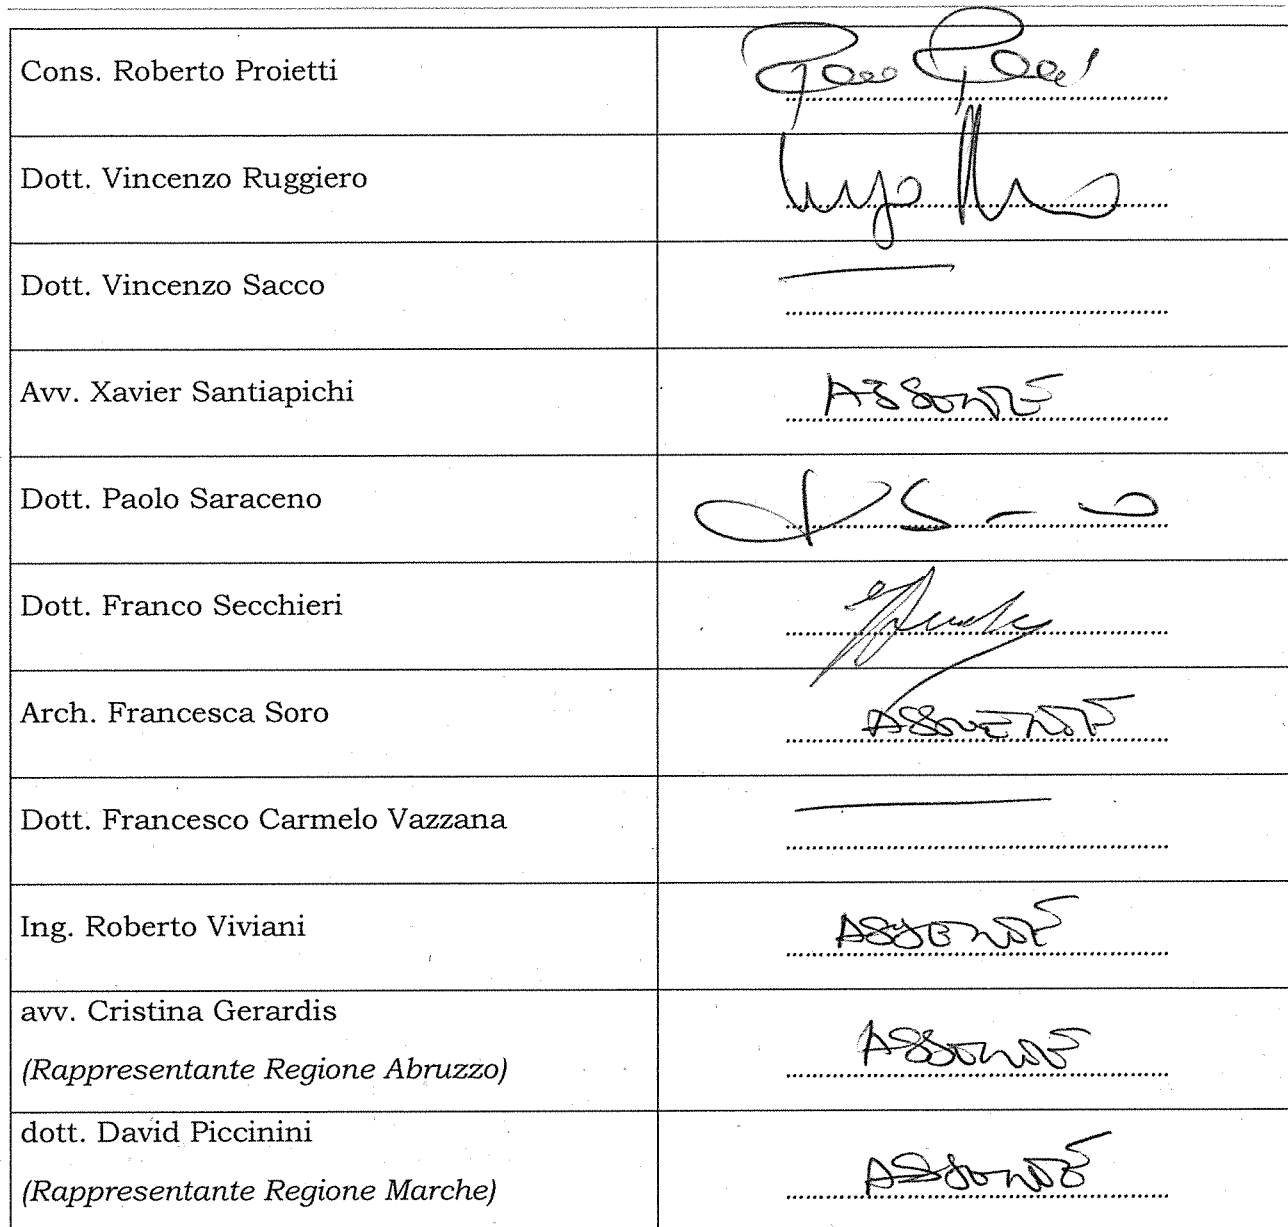 Cons. Roberto Proietti
Dott. Vincenzo Ruggiero
Dott. Vincenzo Sacco
Avv. Xavier Santiapichi ASSENTE
Dott. Paolo Saraceno
Dott. Franco Secchieri
Arch. Francesca Soro ASSENTE
Dott. Francesco Carmelo Vazzana
Ing. Roberto Viviani ASSENTE
avv. Cristina Gerardis
(Rappresentante Regione Abruzzo) ASSENTE
dott. David Piccinini
(Rappresentante Regione Marche) ASSENTE